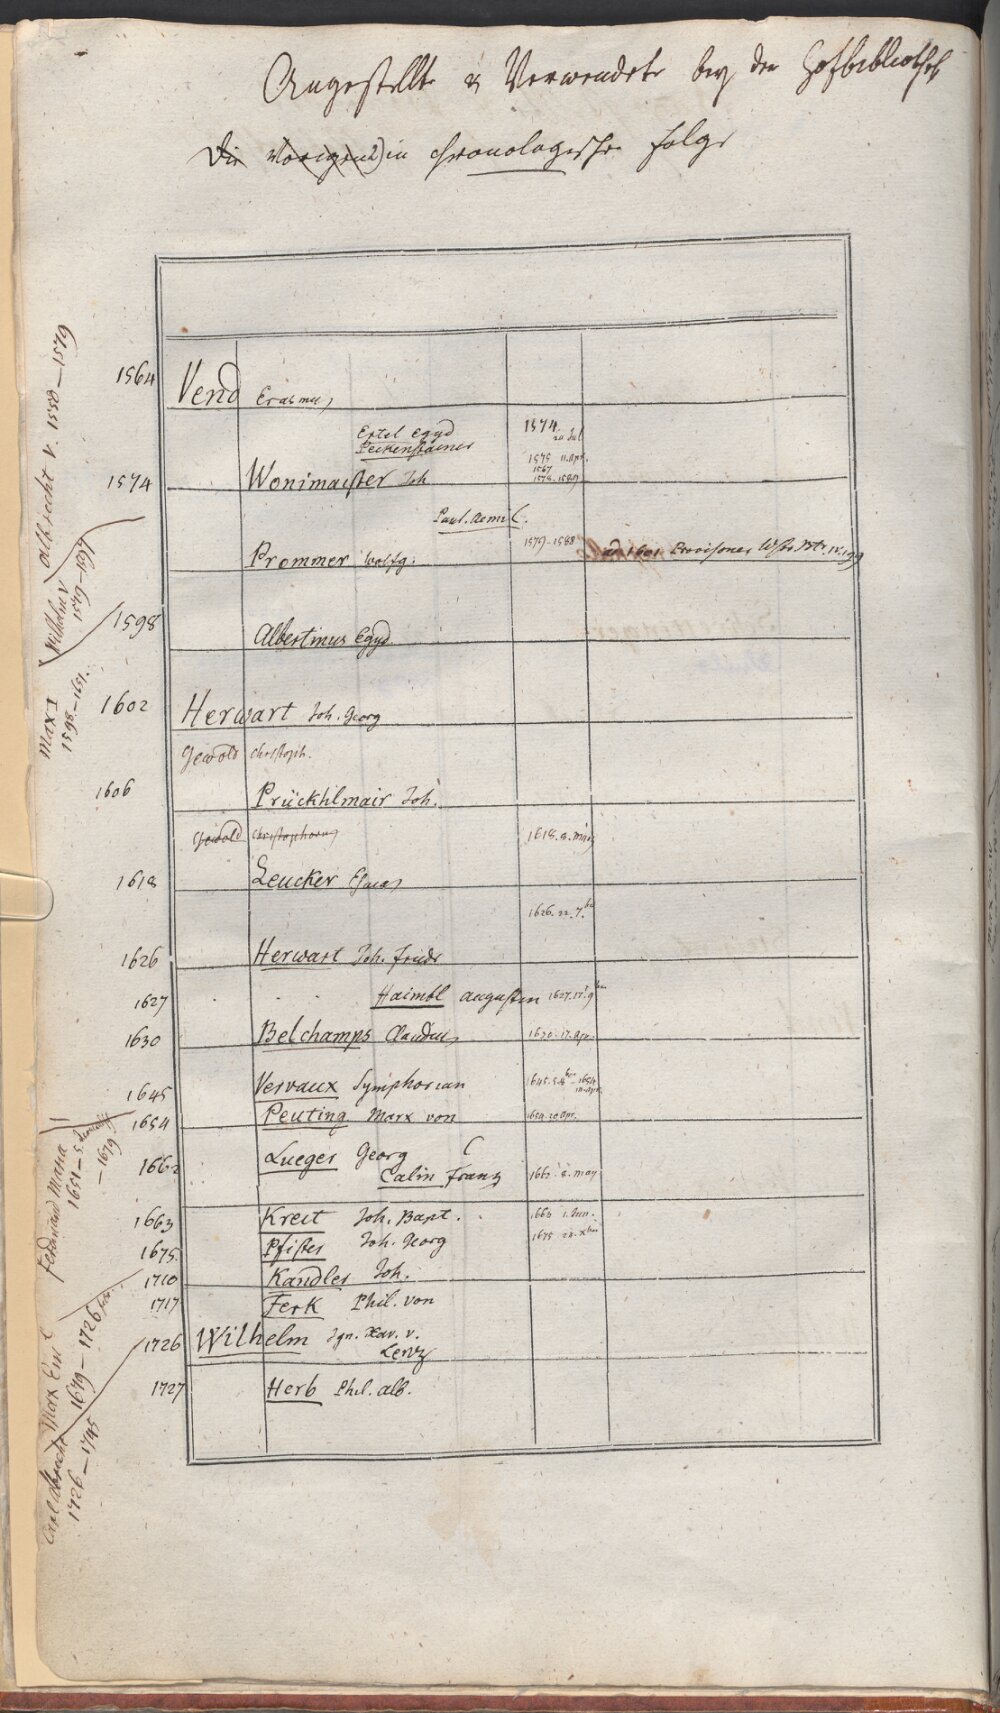 Angestellte & Verwendete bey der Hofbibliothek
Die Vorigen in chronologischer Folge
1564 Vend Erasmus
Ertel Egyd 1574 20 Jul
Peckenstainer 1575 11. Apr.
1567
1574 Wonimaister Joh 1578-1589
Paul. Aemil.
1579-1588
Prommer Wolfg. ad 1601. Provisoner Wstr. Btr. IV. 199
1598 Albertinus Egyd.
1602 Herwart Joh. Georg
Gewold Christoph.
1606 Prückhlmair Joh.
Gewold Christophorus 1618. 2. März
1618 Leucker Esaias
1626. 22. 7.
1626 Herwart Joh. Fridr
1627 Haimbl Augustin 1627. 17. 9
1630 Belchamps Claudius 1630. 17. Apr.
1645 Vervaux Symphorian 1645. - 1654
1654 Peuting Marx von 1654. 20 Apr.
1662 Lueger Georg
Calin Franz 1662. 2. May
1663 Kreit Joh. Bapt. 1663 1. Jun.
1675 Pfister Joh. Georg 1675 24. X
1710 Kandler Joh.
1717 Ferk Phil. von
1726 Wilhelm Ign. Xav. v.
Lenz
1727 Herb Phil. Alb.
Albrecht V. 1550-1579
Wilhelm V
1579-1597
Max I
1598-1651.
Ferdinand Maria
1651-
-1679
Max Em
1679-1726
Carl Albrecht
1726-1745